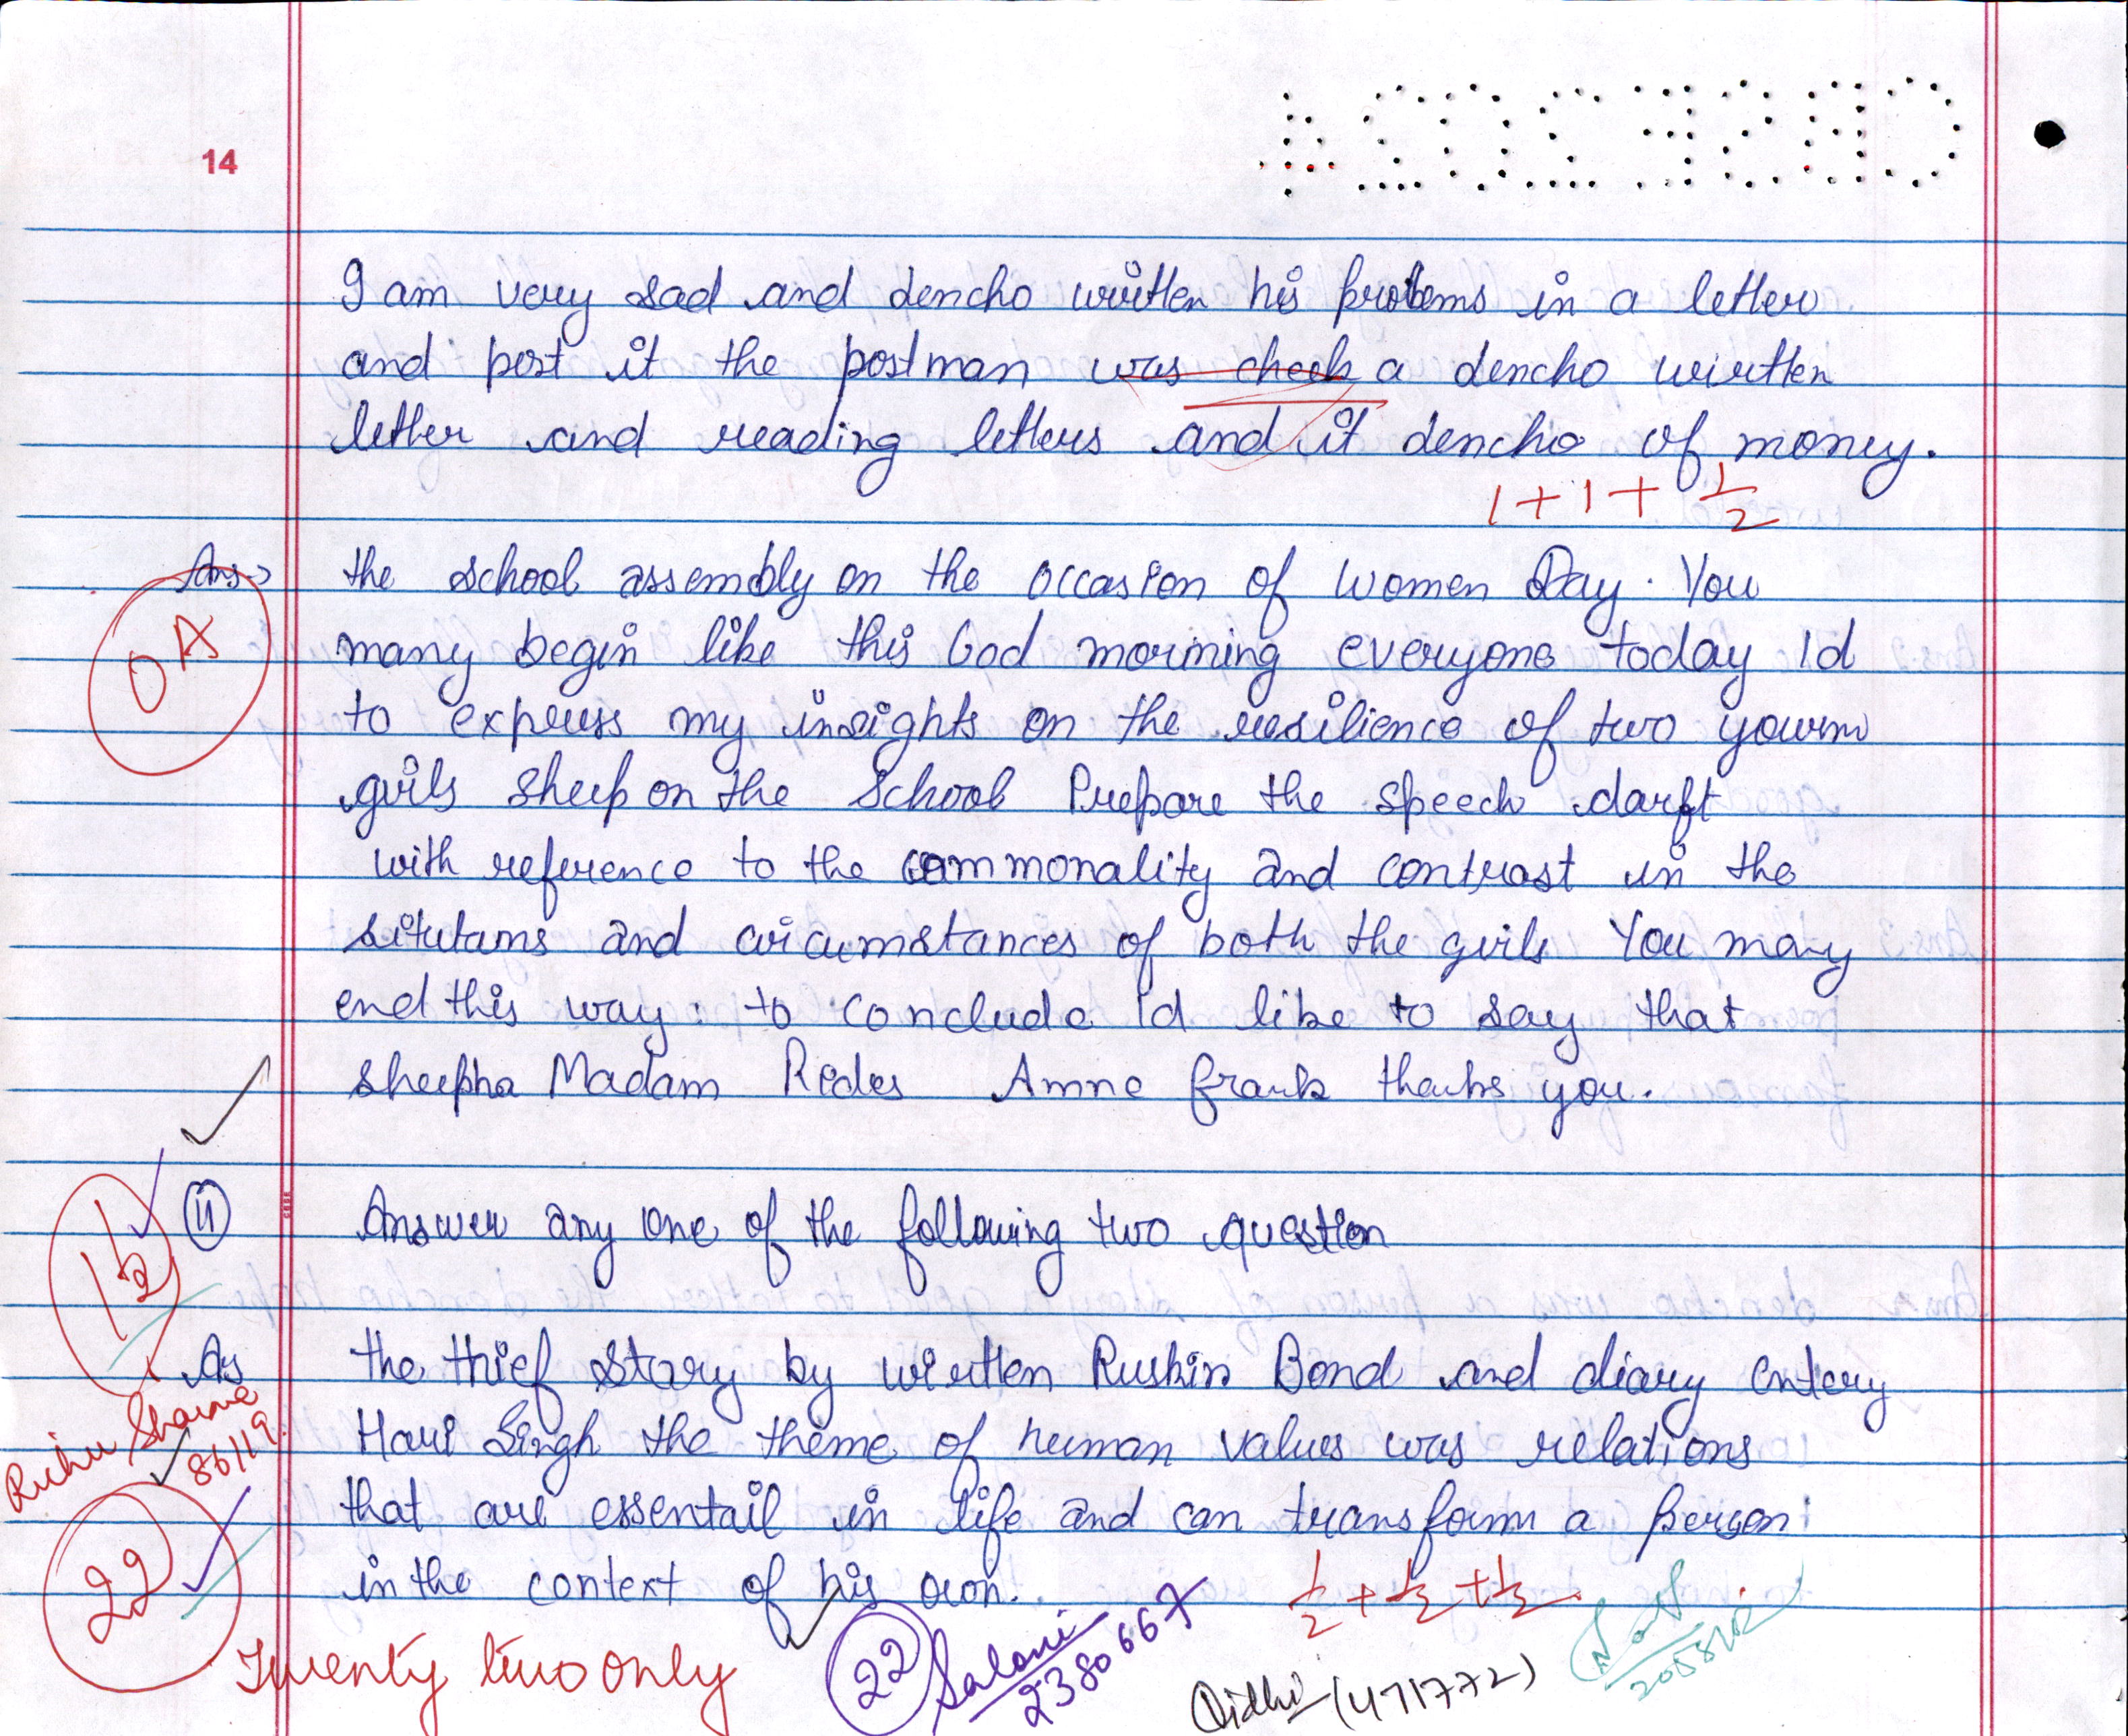 CBSE 2024
14
I am very sad and dencho wriitten his problems in a letter
and post it the postman was check a dencho wirtten
letter and reading letters and it dencho of money.
1 + 1 + 1/2
Ans→ the school assembly on the occasion of Women Day. You
OA
many begin like this God morining everyone today Id
to express my insights on the resilience of two yourm
girls sheep on the School Prepare the speech darft
with reference to the commonality and contrast in the
situtams and circumstances of both the girls You many
end this way: to conclude Id like to say that
sheepha Madam Rides Amne frank thanks you.
(ii) Answer any one of the following two question
1 1/2
As the thief story by wirtten Ruskin Bond and diary entery
Hari Singh the theme of human values was relations
Sharma
86119
that are essentail in life and can transform a person
in the context of his own.
1/2 + 1/2 + 1/2
22
Twenty two only
22
Saloni
2380667
Didhi (471772)